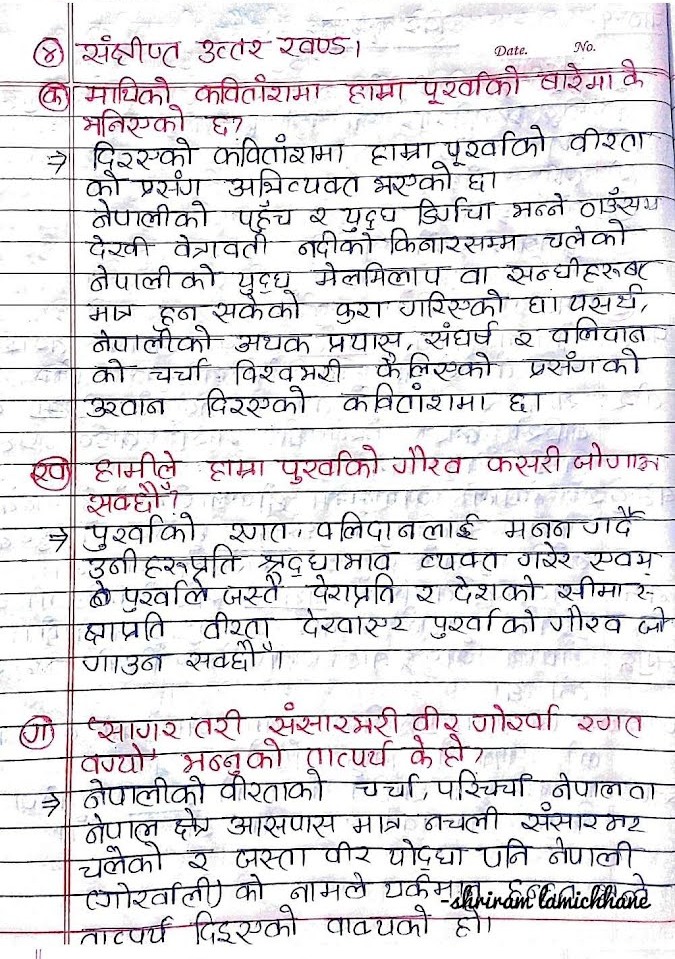 Date. No.
४ संक्षीप्त उत्तर खण्ड।
क माथिको कवितांशमा हाम्रा पूर्खाको बारेमा के
भनिएको छ?
⇒ दिइएको कवितांशमा हाम्रा पूर्खाको वीरता
को प्रसंग अभिव्यक्त भएको छ।
नेपालीको पहुँच र युद्ध डिर्गाचा भन्ने ठाउँसम
देखी वेत्रावती नदीको किनारसम्म चलेको
नेपालीको युद्ध मेलमिलाप वा सन्धीहरूबाट
मात्र हुन सकेको कुरा गरिएको छ। यसर्थ,
नेपालीको अथक प्रयास, संघर्ष र वलिदान
को चर्चा विश्वभरी फैलिएको प्रसंगको
उखान दिइएको कवितांशमा छ।
ख हामीले हाम्रा पुर्खाको गौरव कसरी जोगाउन
सक्छौँ?
⇒ पुर्खाको रगत, वलिदानलाई मनन गर्दै
उनीहरूप्रति श्रद्धाभाव व्यक्त गरेर एवम्
पुर्खाले जस्तै देशप्रति र देशको सीमार
क्षाप्रति वीरता देखाएर पुर्खाको गौरव जो
गाउन सक्छौँ।
ग 'सागर तरी संसारभरी वीर गोर्खा रगत
बग्यो' भन्नुको तात्पर्य के हो?
⇒ नेपालीको वीरताको चर्चा, परिचर्चा नेपाल वा
नेपाल क्षेत्र आसपास मात्र नचली संसारभर
चलेको र जस्ता वीर योद्धा पनि नेपाली
(गोर्खाली) को नामले
-shriram lamichhane
तात्पर्य दिइएको वाक्यको हो।